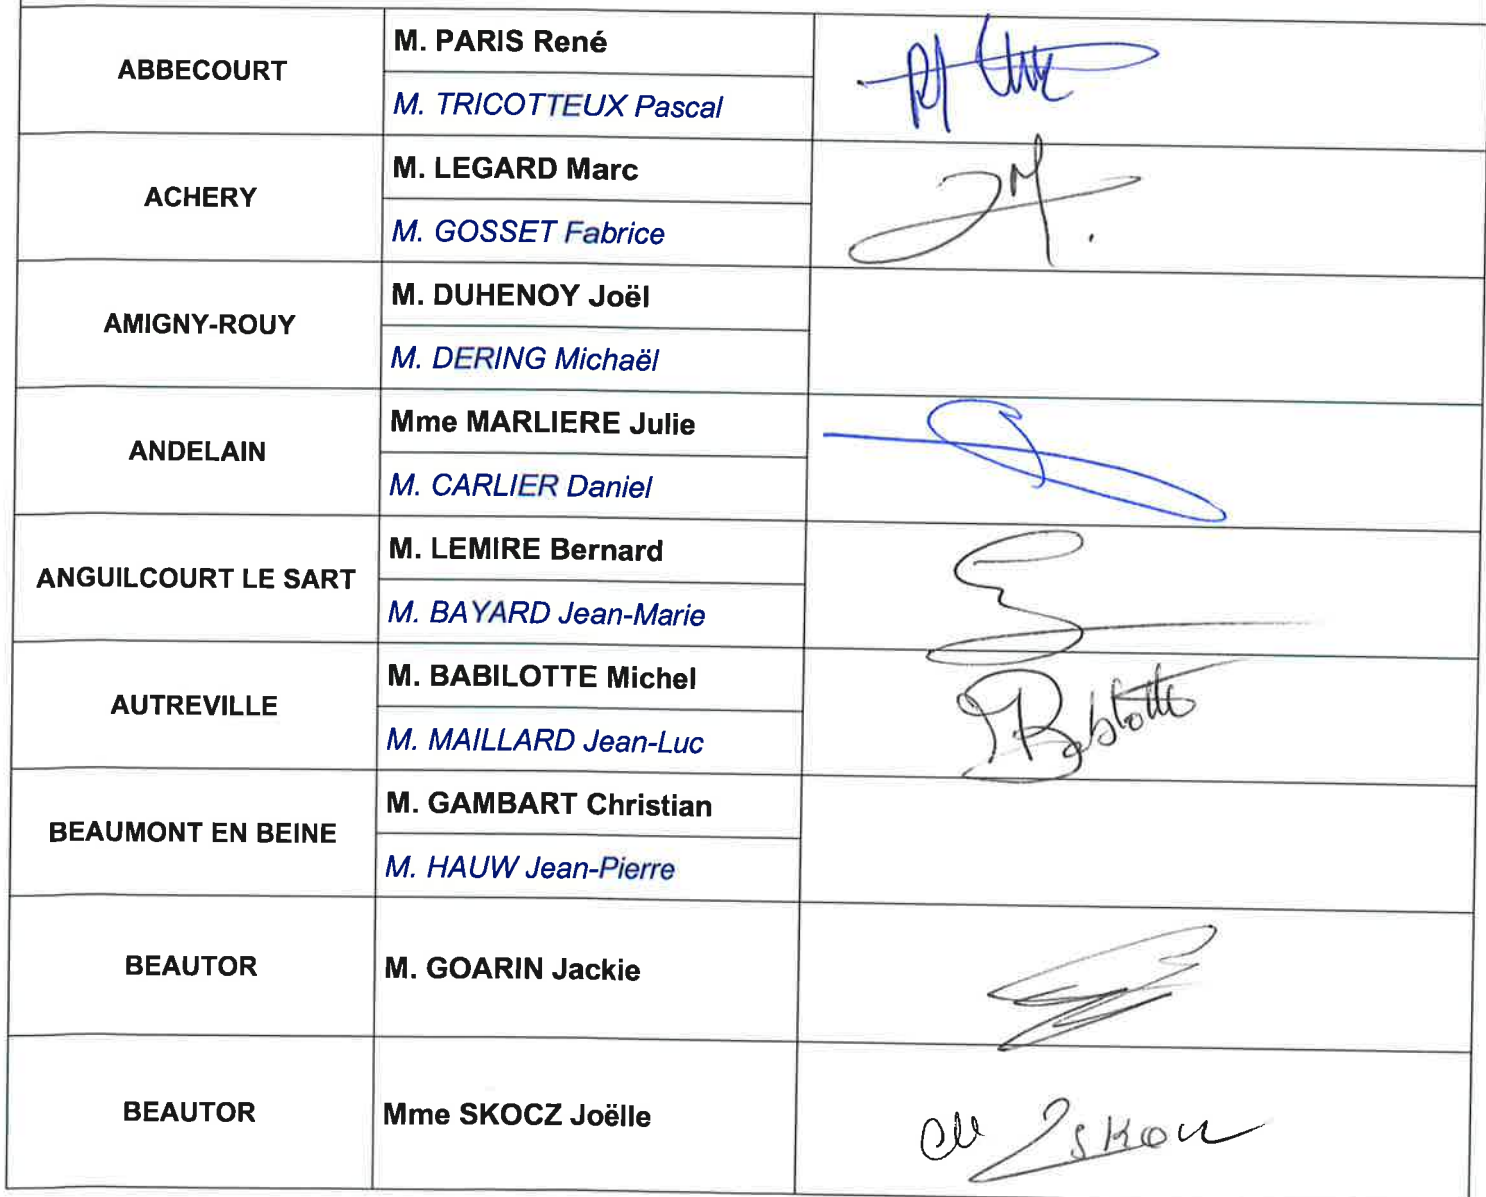 ABBECOURT
M. PARIS René
M. TRICOTTEUX Pascal
ACHERY
M. LEGARD Marc
M. GOSSET Fabrice
AMIGNY-ROUY
M. DUHENOY Joël
M. DERING Michaël
ANDELAIN
Mme MARLIERE Julie
M. CARLIER Daniel
ANGUILCOURT LE SART
M. LEMIRE Bernard
M. BAYARD Jean-Marie
AUTREVILLE
M. BABILOTTE Michel
M. MAILLARD Jean-Luc
Babilotte
BEAUMONT EN BEINE
M. GAMBART Christian
M. HAUW Jean-Pierre
BEAUTOR
M. GOARIN Jackie
BEAUTOR
Mme SKOCZ Joëlle